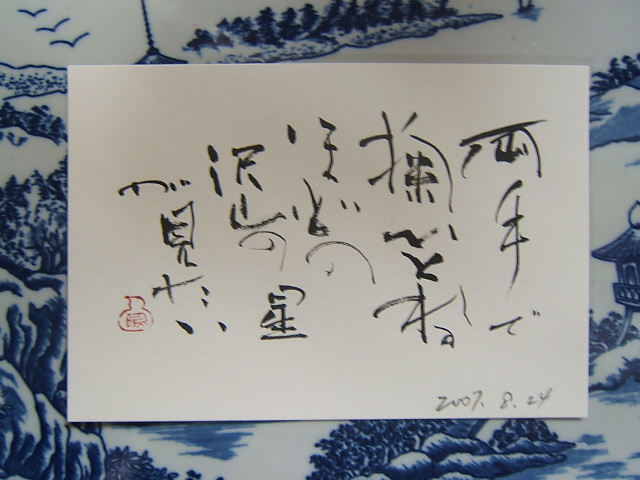 両手で
掬いとれる
ほどの
沢山の星
が見たい
2007. 8. 24